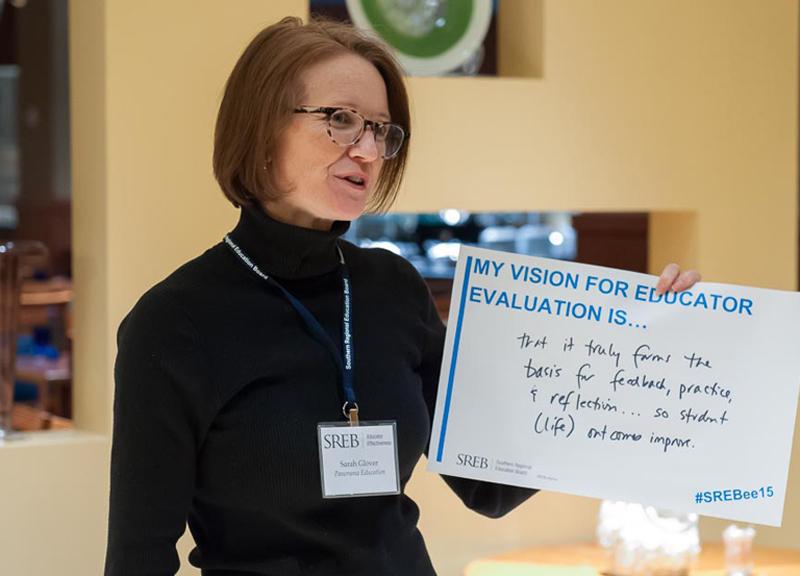 MY VISION FOR EDUCATOR
EVALUATION IS...
that it truly forms the
basis for feedback, practice,
& reflection... so student
(life) outcomes improve.
SREB
Southern Regional
Education Board
#SREBee15
Southern Regional Education Board
Regional Education Board
SREB
Educator
Effectiveness
Sarah Glover
Panorama Education